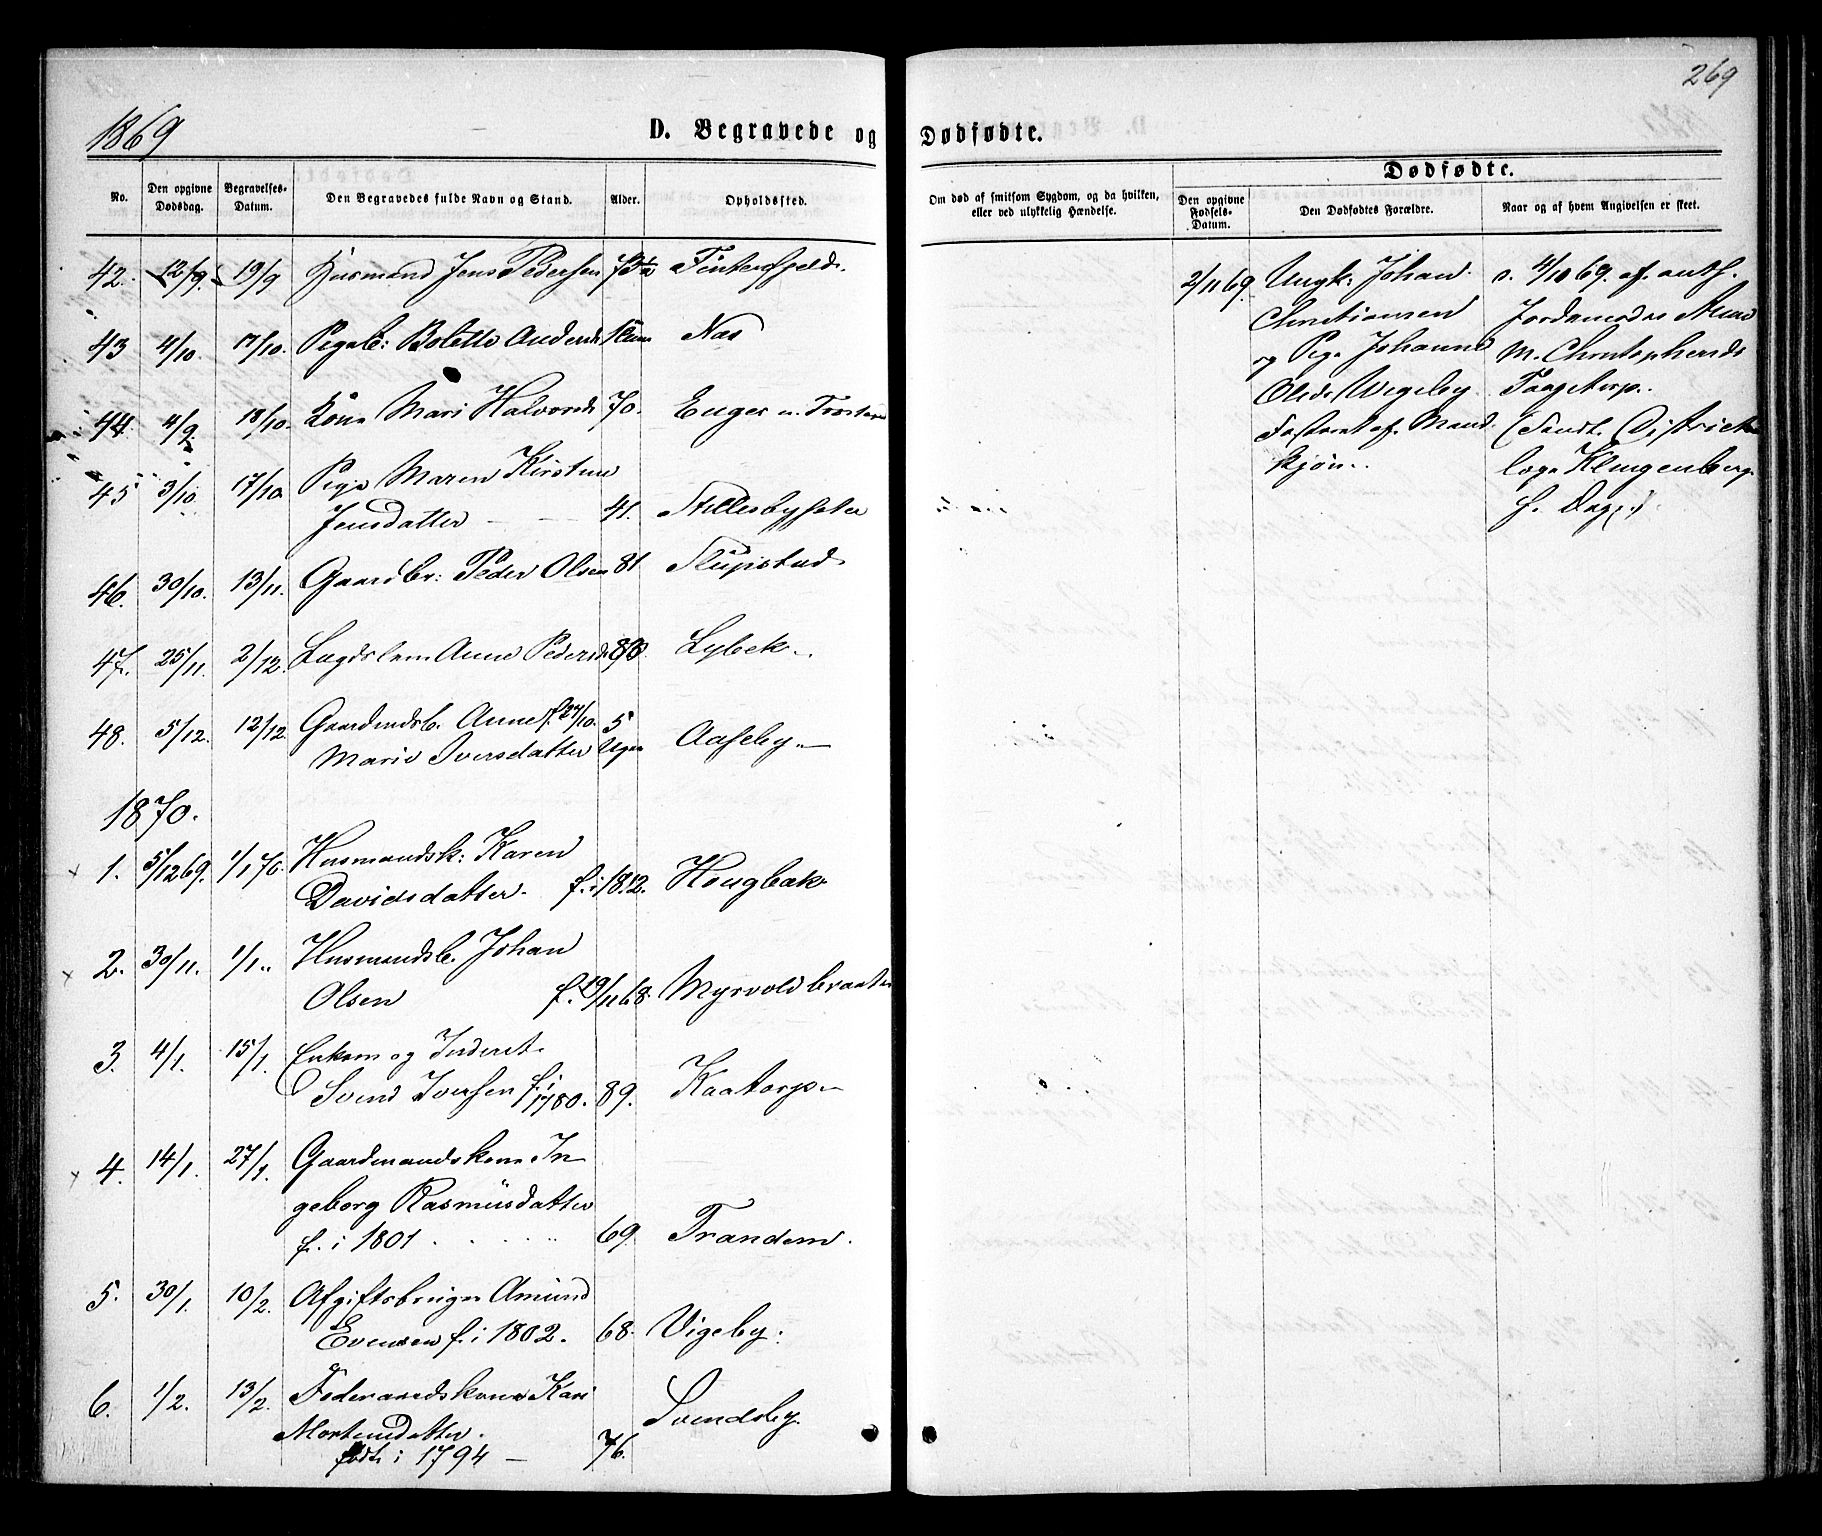 269
1869
D. Begravede og Dødfødte.
No.
Den opgivne Dødsdag.
Begravelses-Datum.
Den Begravedes fulde Navn og Stand.
Alder.
Opholdssted.
Om død af smitsom Sygdom, og da hvilken, eller ved ulykkelig Hændelse.
Dødfødte.
Den opgivne Fødsels-Datum.
Den Dødfødtes Forældre.
Naar og af hvem Angivelsen er skeet.
42. 12/9. 19/9 Husmand Jens Pedersen
43 4/10. 17/10. Pigeb: Bolette Andersd Næs
44. 4/9. 18/10. Kone Mari Halvorsd 70. Enger
45 3/10. 17/10. Pige Maren Kirstine
Jensdatter 41. Stillesbysæter
46. 30/10. 13/11. Gaardbr: Peder Olsen 81
47. 25/11. 2/12. Lægdslem Anne Pedersd Lybek
48. 5/12. 12/12. Gaardmdsb. Anne f. 27/10. 5
Marie Iversdatter Uger Aaseby
1870.
1. 5/12 69. 1/1 70. Husmandsk: Karen
Davidsdatter. f. i 1812. Hougbak
2. 30/11. 1/1 „ Husmandsb. Johan
Olsen f. 19/11 68. Myrvoldbraaten
3. 4/1. 15/1. Enkem og Inderst
Svend Iversen f. i 1780. 89. Kaatorp
4. 14/1. 27/1. Gaardmandskone In
geborg Rasmüsdatter
f. i 1801 69. Trandem.
5. 30/1. 10/2. Afgiftsbruger Amünd
Evensen f. i 1802. 68. Vigeby.
6. 1/2. 13/2. Føderaadskone Kari
Mortensdatter. Svendsby.
født i 1794 — 76.
2/11 69. Ungk: Johan
Christiansen
og Pige Johanne
Olsd. Wigeby
Fosteret af Mand
kjøn.
d. 4/10 69. af auth.
Jordemoder
M. Christophersd
Taagetorp.
(Samt. District
læge Klingenberg